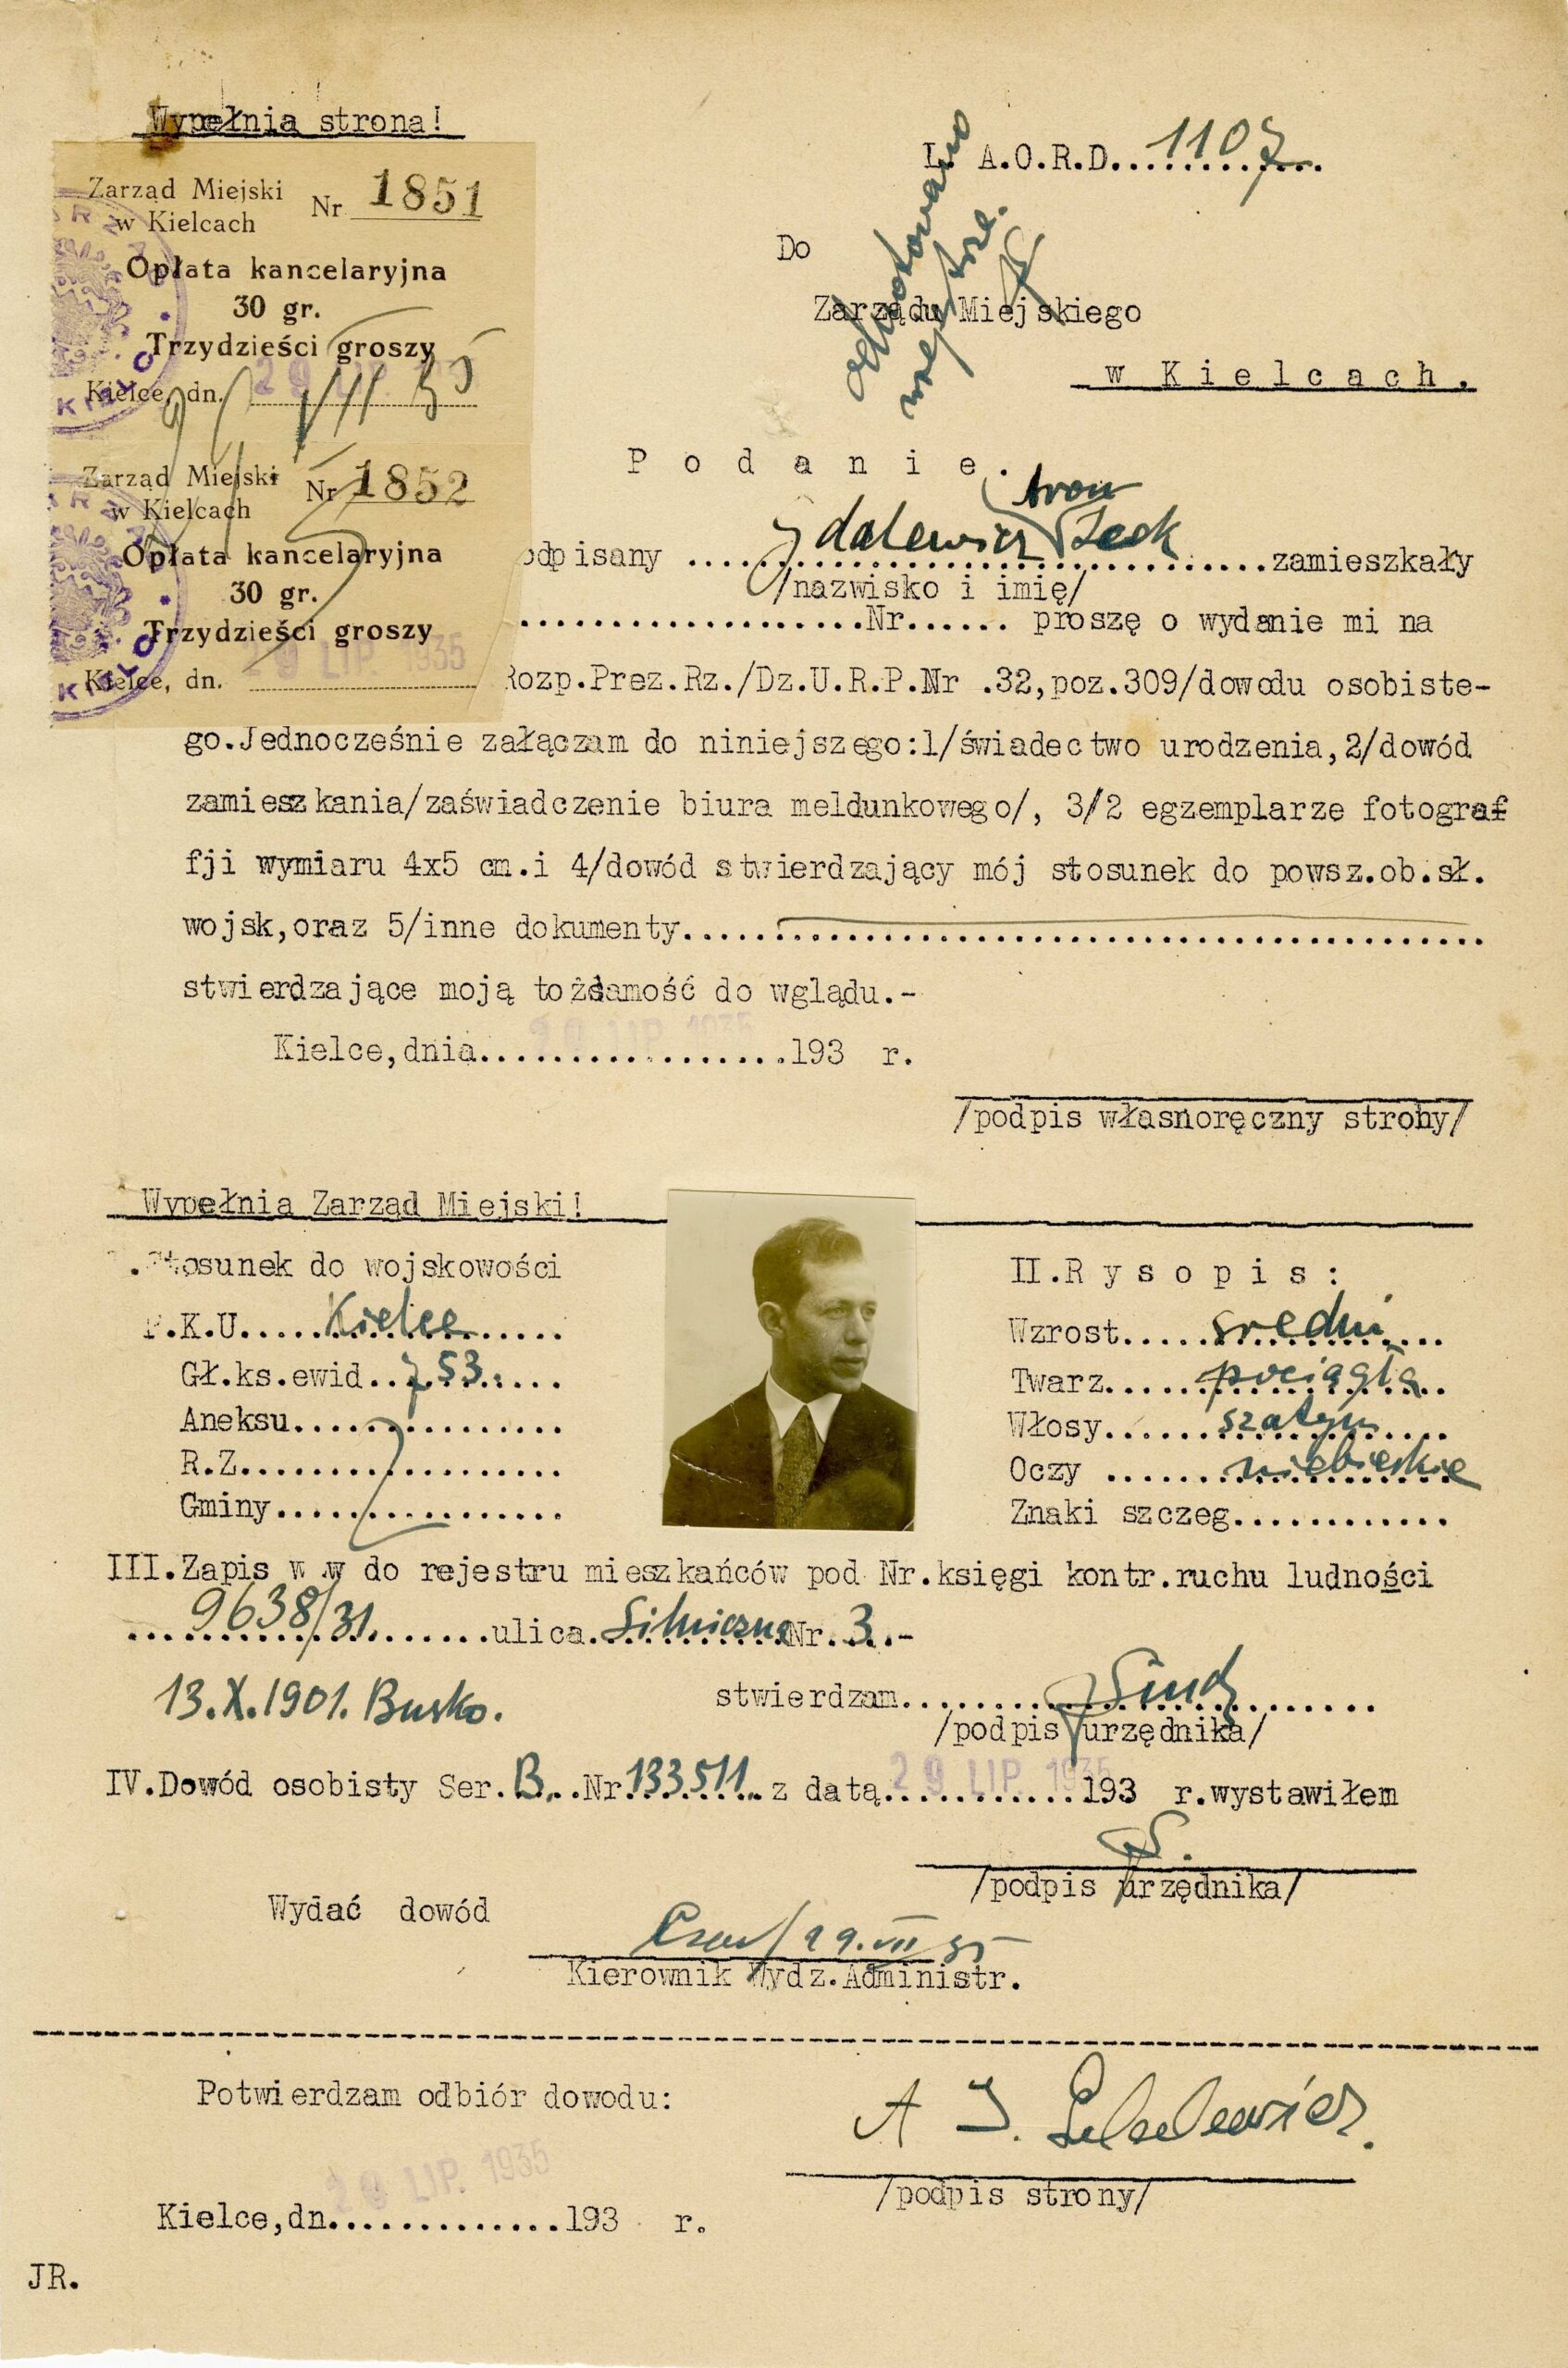 Wypełnia strona!
L. A.O.R.D. 1107
Zarząd Miejski
w Kielcach
Nr 1851
Opłata kancelaryjna
30 gr.
Trzydzieści groszy
Kielce, dn. 29 VII 35
Zarząd Miejski
w Kielcach
Nr 1852
Opłata kancelaryjna
30 gr.
Trzydzieści groszy
Kielce, dn. 29 LIP. 1935
Do
Zarządu Miejskiego
w Kielcach.
Podanie.
Aron
odpisany ....Zdalewicz Icek....zamieszkały
/nazwisko i imię/
...................Nr...... proszę o wydanie mi na
Rozp.Prez.Rz./Dz.U.R.P.Nr .32,poz.309/dowodu osobiste-
go.Jednocześnie załączam do niniejszego:1/świadectwo urodzenia,2/dowód
zamieszkania/zaświadczenie biura meldunkowego/, 3/2 egzemplarze fotograf
fji wymiaru 4x5 cm.i 4/dowód stwierdzający mój stosunek do powsz.ob.sł.
wojsk,oraz 5/inne dokumenty..................................................
stwierdzające moją tożsamość do wglądu.-
29 LIP. 1935
Kielce,dnia...................193 r.
/podpis własnoręczny strony/
Wypełnia Zarząd Miejski!
.Stosunek do wojskowości
P.K.U.....Kielce.....
Gł.ks.ewid..753.....
Aneksu................
R.Z...................
Gminy.................
II.Rysopis:
Wzrost.....średni...
Twarz.....pociągła..
Włosy......szatyn....
Oczy ......niebieskie
Znaki szczeg............
III.Zapis w w do rejestru mieszkańców pod Nr.księgi kontr.ruchu ludności
....9638/31.......ulica.Silniczna Nr.3..-
13.X.1901. Busko.
stwierdzam..............................
/podpis urzędnika/
IV.Dowód osobisty Ser.B...Nr.133511..z datą 29 LIP. 1935 193 r.wystawiłem
/podpis urzędnika/
Wydać dowód
29.VII 35
Kierownik Wydz.Administr.
Potwierdzam odbiór dowodu:
A I.
/podpis strony/
29 LIP. 1935
Kielce,dn..............193 r.
JR.